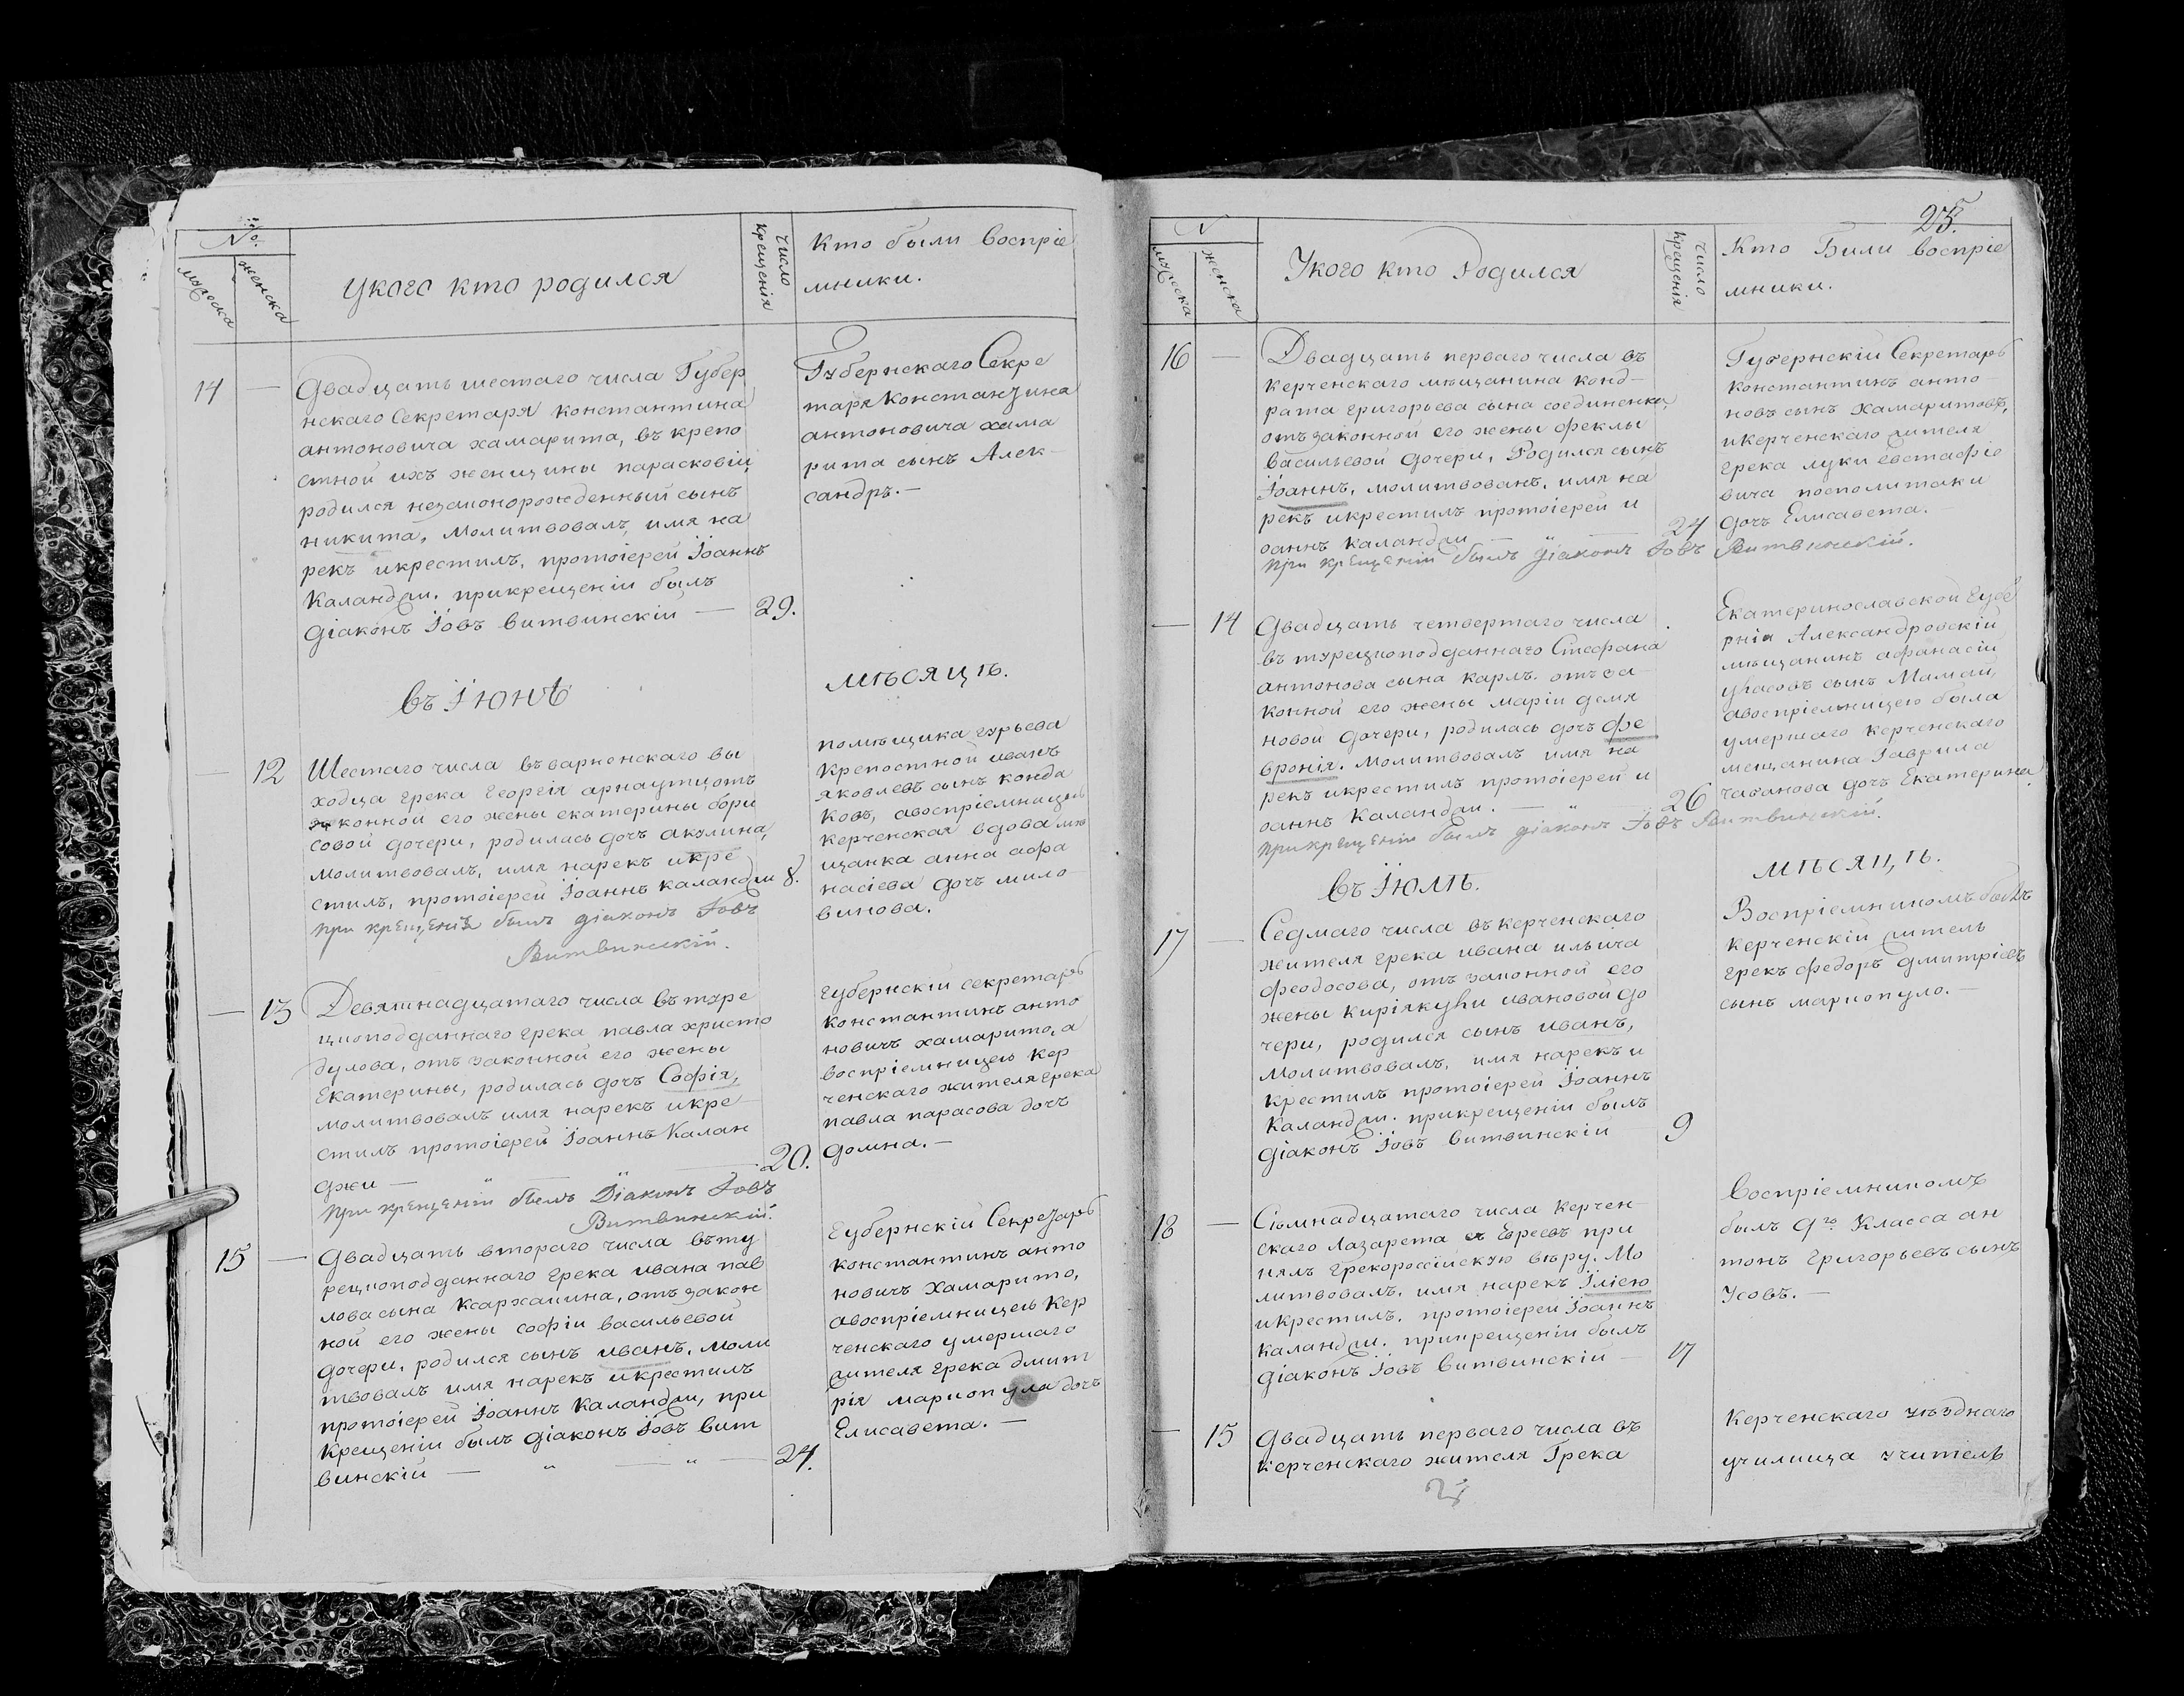 №.
мужеска
женска
укого кто родился
число
крещенія
Кто были воспріе
мники.
14 —
Двадцать шестаго числа Губер
нскаго Секретаря константина
антоновича хамарита, въ крепо
стной ихъ женщины парасковіи
родился незаконорожденный сынъ
никита, Молитвовалъ, имя на
рекъ икрестилъ, протоіерей Іоаннъ
Каланджи. прикрещеніи былъ
діаконъ Іовъ витвинскій —
29.
Губернскаго Секре
таря Константина
антоновича хама
рита сынъ Алек-
сандръ.—
въ Іюнѣ
мѣсяцѣ.
— 12
Шестаго числа въ варненскаго вы
ходца грека Георгія арнаутцотъ
законной его жены екатерины бори
совой дочери, родилась дочь акулина,
молитвовалъ, имя нарекъ икре
стилъ, протоіерей Іоаннъ каланджи
при крещеніи былъ діаконъ Іовъ
Витвинскій.
8.
помѣщика гурьева
Крепостной иванъ
яковлевъ сынъ конда
ковъ, авоспріемницею
керченская вдова мѣ
щанка анна афа
насіева дочь мило
винова.
— 13
Девятнадцатаго числа въ туре
циоподданнаго грека павла христо
дулова, отъ законной его жены
Екатерины, родилась дочь Софія,
молитвовалъ имя нарекъ икре
стилъ протоіерей Іоаннъ Калан
джи —
При крещеніи былъ Діаконъ Іовъ
Витвинскій.
20.
Губернскій секретарь
константинъ анто
новичъ хамарито, а
воспріемницею кер
ченскаго жителя грека
павла парасова дочь
домна.—
15 —
Двадцать втораго числа въ ту
рециоподданнаго грека ивана пав
лова сына Ксархакина, отъ закон
ной его жены софіи васильевой
дочери, родился сынъ иванъ, моли
твовалъ имя нарекъ икрестилъ
протоіерей Іоаннъ Каланджи, при
Крещеніи былъ діаконъ Іовъ вит
винскій — " — " —
24.
Губернскій Секретарь
константинъ анто
новичъ Хамарито,
авоспріемницею Кер
ченскаго умершаго
жителя грека дмит
рія мариопула дочь
Елисавета.—
25.
N
мужеска
женска
Укого кто Родился
число
крещенія
Кто Били воспріе
мники.
16 —
Двадцать перваго числа въ
керченскаго мѣщанина конд-
рата григорьева сына соединенка,
отъ законной его жены феклы
васильевой дочери, Родился сынъ
Іоаннъ, молитвованъ, имя на
рекъ икрестилъ протоіерей и
оаннъ Каланджи —
При крещеніи былъ діаконъ Іовъ Витвинскій.
24
Губернскій Секретарь
константинъ анто
новъ сынъ хамаритовъ,
икерченскаго жителя
грека луки евстафіе
вича посполитаки
дочь Елисавета.—
— 14
Двадцать четвертаго числа
въ турециоподданнаго Стефана
антонова сына карлъ. отъ за-
конной его жены маріи демя
новой дочери, родилась дочь фе
вронія. молитвовалъ имя на
рекъ икрестилъ протоіерей и
оаннъ Каланджи. — " —
При крещеніи былъ діаконъ Іовъ Витвинскій.
26
Екатеринославской Губе
рніи Александровскій
мѣщанинъ афанасій
сынъ Мамай,
авоспріемницею была
умершаго керченскаго
мещанина Гаврила
чабанова дочь Екатерина
въ Іюлѣ.
мѣсяцѣ.
17 —
Седмаго числа въ керченскаго
жителя грека ивана ильича
феодосова, отъ законной его
жены Киріякуки ивановой до
чери, родился сынъ иванъ,
Молитвовалъ, имя нарекъ и
крестилъ протоіерей Іоаннъ
Каланджи. прикрещеніи былъ
діаконъ Іовъ витвинскій
9
Воспріемникомъ былъ
керченскій житель
грекъ федоръ дмитріевъ
сынъ мариопуло.—
18 —
Сѣмнадцатаго числа Керчен-
скаго Лазарета Евреевъ при
нялъ грекороссійскую вѣру. Мо
литвовалъ, имя нарекъ Іліею
икрестилъ. протоіерей Іоаннъ
каланджи. прикрещеніи былъ
діаконъ Іовъ витвинскій —
17
воспріемникомъ
былъ 9го Класса ан
тонъ григорьевъ сынъ
Усовъ.—
— 15
Двадцать перваго числа въ
керченскаго жителя Грека
Керченскаго уѣзднаго
училища учитель